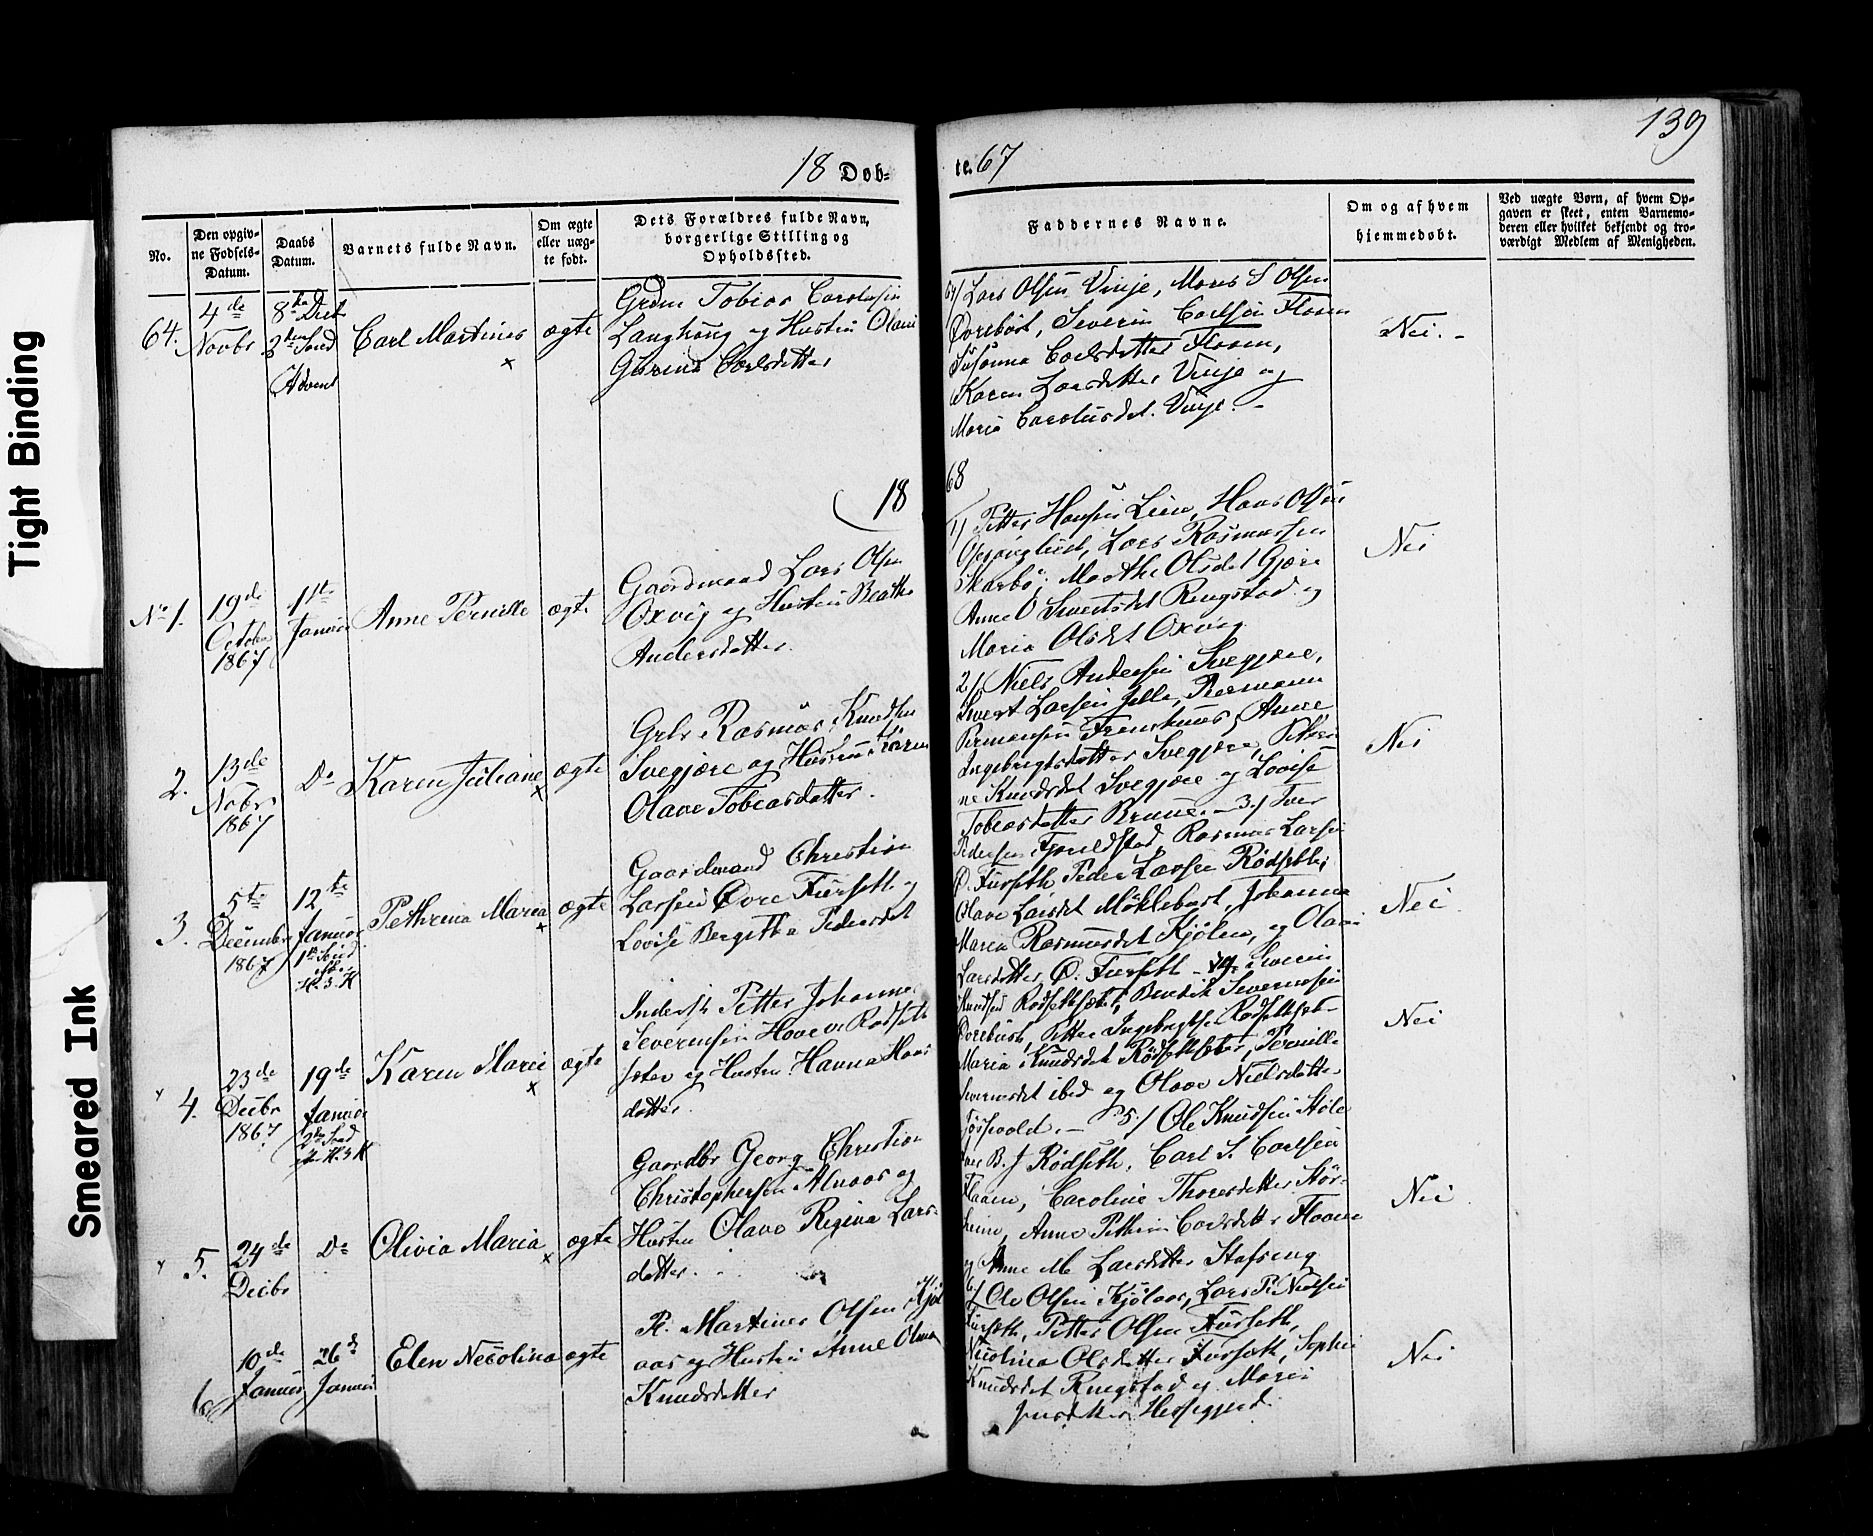 139
18 Døb-
te. 67
No.
Den opgiv-
ne Fødsels-
Datum.
Daabs
Datum.
Barnets fulde Navn.
Om ægte
eller uæg-
te født.
Dets Forældres fulde Navn,
borgerlige Stilling og
Opholdssted.
Faddernes Navne.
Om og af hvem
hjemmedøbt.
Ved uægte Børn, af hvem Op-
gaven er skeet, enten Barnemo-
deren eller hvilket bekjendt og tro-
værdigt Medlem af Menigheden.
64.
4de
Novbr
8de Dect
2den Sønd
Advent
Carl Martinus
ægte
Grdm Tobias Carolusen
Langhaug og Hustru Olave
Gurine Carlsdatter
64/ Lars Olsen Vinje, Mons S Olsen
Øvrebust, Severin Carlsen Flaaen
Susanna Carlsdatter Flaaen,
Karen Larsdatter Vinje og
Maria Carolusdet. Vinje. -
Nei. -
18
68
No 1.
19de
October
1867
1ste
Januar
Anne Pernille
ægte
Gaardmand Lars Olsen
Oxvig og Hustru Beathe
Andersdatter.
1/ Petter Hansen Leen, Hans Olsen
Lars Rasmussen
Skarbø, Marthe Olsdet Gjære
Anne O Sivertsdet Ringstad og
Maria Olsdet Oxvig
Nei
2.
13de
Nobr
1867
Do
Karen Juliane
ægte
Grbr Rasmus Knudsen
Svegjære og Hustru Karen
Olave Tobiasdatter.
2/ Niels Andersen Svegjære,
Sivert Larsen Jelle, Peermann
Permansen Anne
Ingebrigtsdatter Svegjære, Pethri-
ne Knudsdet Svegjære og Lovise
Tobiasdatter Brune. - 3/ Iver
Nei
3.
5te
December
1867
12te
Januar
1ste Sønd
H. 3. K
Pethrina Maria
ægte
Gaardmand Christian
Larsen Øvre Furseth og
Lovise Bergitha Pedersdet
Pedersen Fjeldstad, Rasmus Larsen
Ø. Furseth, Peder Larsen Rødsetter,
Olave Larsdet Møklebust, Johanna
Maren Rasmusdet Kjølen, og Olave
Larsdatter Ø. Furseth - 4. Severin
Nei
4.
23de
Decbr
1867
19de
Januar
2den Sønd
H. 3 K
Karen Marie
ægte
Inderst Petter Johannes
Severinsen Rødseth-
sæter og Hustru Hanna Hans
datter.
Knudsen Rødsethsæter, Bendik Severinsen
Øvrebust, Petter Ingebrigtsen Rødsethsæt-
Maria Knudsdet Rødsethsæter, Pernille
Severinsdet ibid og Olave Nielsdatter
- 5/ Ole Knudsen Støle
Nei
5.
24de
Decbr
Do
Olivia Maria
ægte
Gaardbr Georg Christian
Christophersen Alnaas og
Hustru Olave Regina Lars-
datter.
B. J Rødseth, Carl S. Carlsen
Flaaen, Caroline Thoresdatter Stør-
heim, Anne Pethrine Carlsdatter Flaaen
og Anne M Larsdatter Stafseng
Nei
6
10de
Januar
26d
Januar
Elen Nicolina
ægte
P. Martinus Olsen Kjøl
aas og Hustru Anne Olina
Knudsdatter
6/ Ole Olsen Kjølaas, Lars P. Nielsen
Furseth, Petter Olsen Furseth,
Nicolina Olsdatter Furseth, Sophie
Knudsdet Ringstad og Maria
Jensdatter Hessegjerd.
Nei
Tight Binding
Smeared Ink